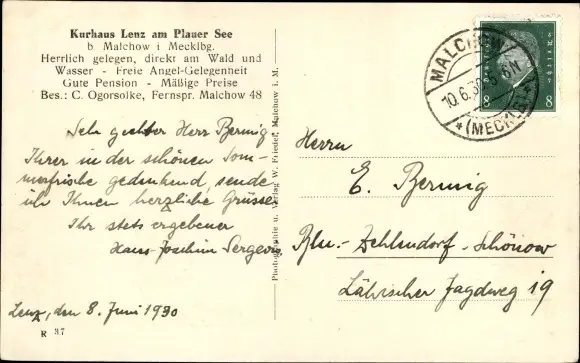 Kurhaus Lenz am Plauer See
b Malchow i Mecklbg.
Herrlich gelegen, direkt am Wald und
Wasser - Freie Angel-Gelegenheit
Gute Pension - Mäßige Preise
Bes.: C. Ogorsolke, Fernspr. Malchow 48
Sehr geehrter Herr Bernig
Ihrer in der schönen Som-
merfrische gedenkend, sende
ich Ihnen herzliche Grüsse
Ihr stets ergebener
Hans-Joachim
Lenz, den 8. Juni 1930
R 37
Photographie u. Verlag W. Friedel, Malchow i. M.
MALCHOW
10.6.30
(MECKLB)
8 8
Herrn
E. Bernig
Bln.-Zehlendorf-Schönow
Jagdweg 19